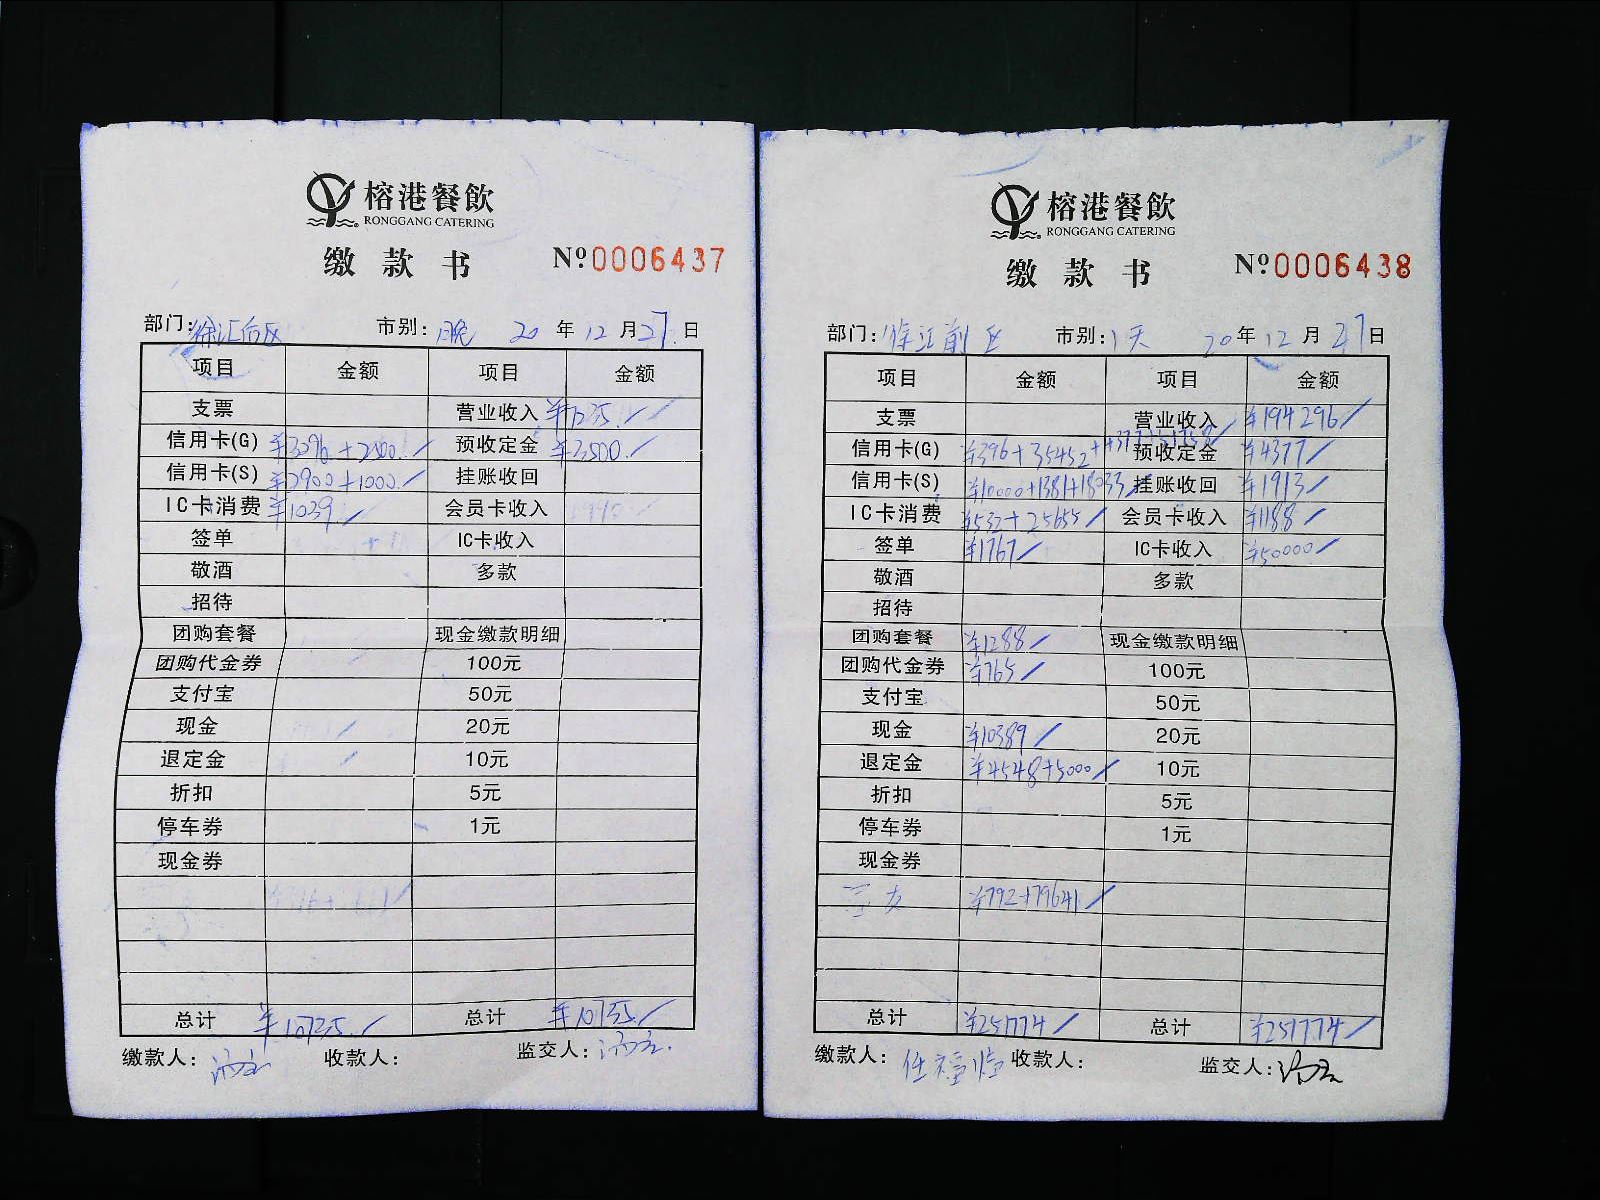 榕港餐飲
RONGGANG CATERING
缴款书
Nº0006437
部门:徐汇后区 市别:晚 20年12月27日
项目 金额 项目 金额
支票 营业收入
信用卡(G) ¥3296+2500 预收定金 ¥3500
信用卡(S) ¥2900+1000 挂账收回
IC卡消费 ¥1039 会员卡收入
签单 IC卡收入
敬酒 多款
招待
团购套餐 现金缴款明细
团购代金券 100元
支付宝 50元
现金 20元
退定金 10元
折扣 5元
停车券 1元
现金券
总计 ¥10735 总计 ¥10735
缴款人: 收款人: 监交人:
榕港餐飲
RONGGANG CATERING
缴款书
Nº0006438
部门:徐汇前区 市别:1天 20年12月27日
项目 金额 项目 金额
支票 营业收入 ¥194296
信用卡(G) ¥396+35452+ 预收定金 ¥4377
信用卡(S) ¥10000+1381+18033 挂账收回 ¥1913
IC卡消费 ¥532+25655 会员卡收入 ¥1188
签单 ¥1767 IC卡收入 ¥50000
敬酒 多款
招待
团购套餐 ¥1288 现金缴款明细
团购代金券 ¥765 100元
支付宝 50元
现金 ¥10389 20元
退定金 ¥4548+5000 10元
折扣 5元
停车券 1元
现金券
¥792+79641
总计 ¥251774 总计 ¥251774
缴款人: 收款人: 监交人: